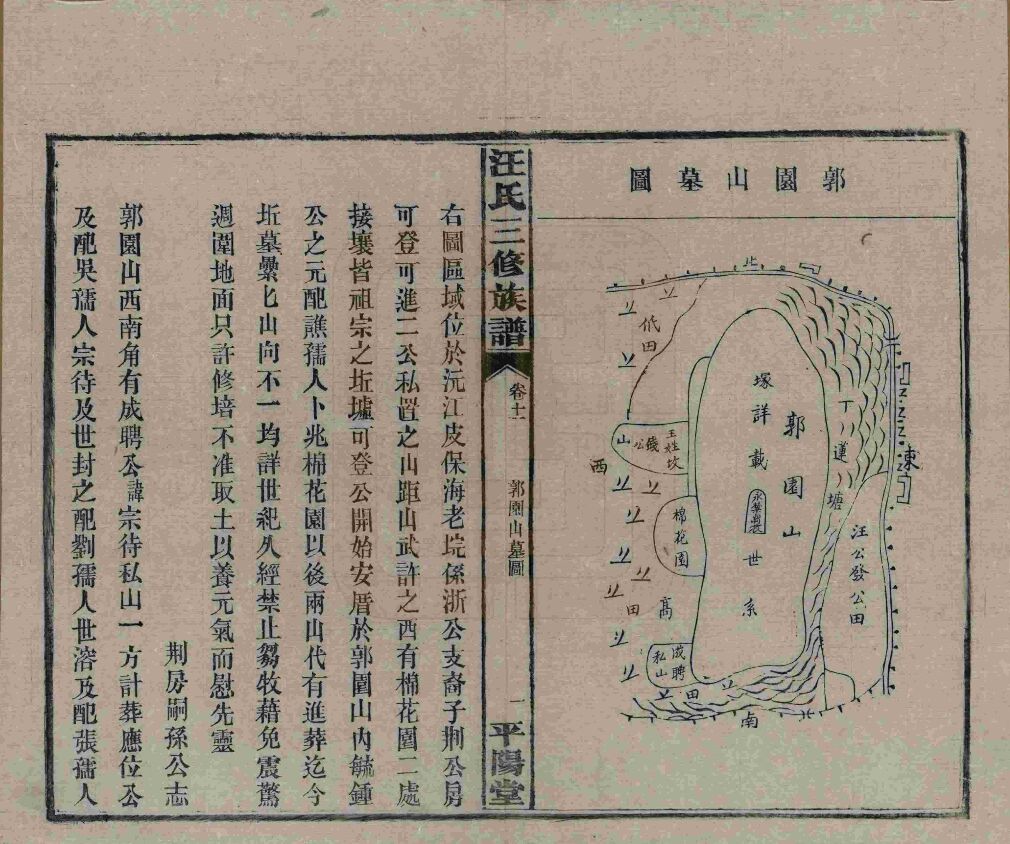 郭園山墓圖
北
低田
塚詳載世系
郭園山
丁蓮塘
東
王姓坟
山
西
棉花園
汪公發公田
田
高
成聘
私山
田
南
汪氏三修族譜
卷十一
郭園山墓圖
一
平陽堂
右圖區域位於沅江皮保海老垸係浙公支裔子荆公房
可登可進二公私置之山距山武許之西有棉花園二處
接壤皆祖宗之坵墟可登公開始安厝於郭園山內毓鍾
公之元配譙孺人卜兆棉花園以後兩山代有進葬迄今
坵墓纍匕山向不一均詳世紀久經禁止芻牧藉免震驚
週圍地面只許修培不准取土以養元氣而慰先靈
荆房嗣孫公志
郭園山西南角有成聘公諱宗待私山一方計葬應位公
及配吳孺人宗待及世封之配劉孺人世溶及配張孺人